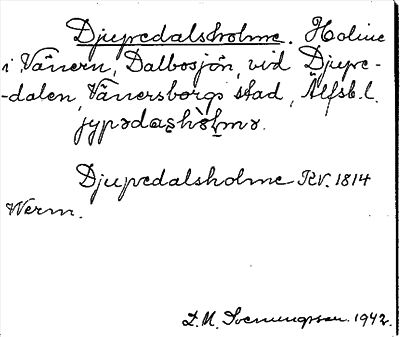 Djupedalsholme. Holme
i Vänern, Dalbosjön, vid Djupe-
-dalen, Vänersborgs stad, Älfsb.l.
jypədas̱hòḻmə.
Djupedalsholme RV. 1814
Werm.
1942.